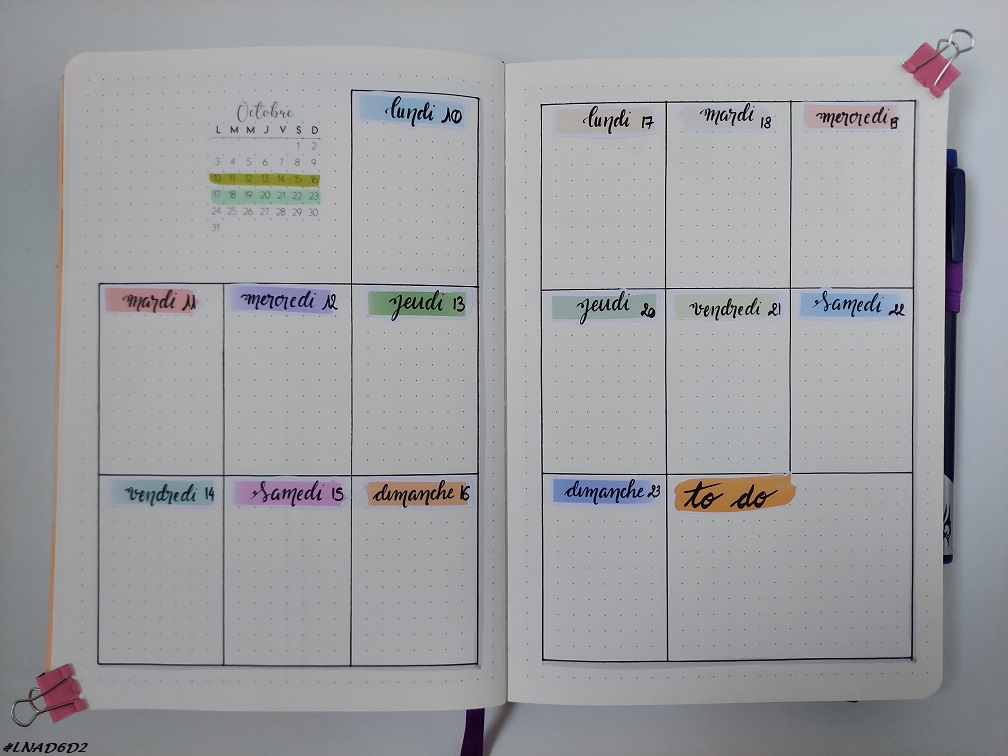 Octobre
L M M J V S D
1 2
3 4 5 6 7 8 9
10 11 12 13 14 15 16
17 18 19 20 21 22 23
24 25 26 27 28 29 30
31
lundi 10
mardi 11
mercredi 12
jeudi 13
vendredi 14
samedi 15
dimanche 16
lundi 17
mardi 18
mercredi
jeudi 20
vendredi 21
samedi 22
dimanche 23
to do
#LNAD6D2